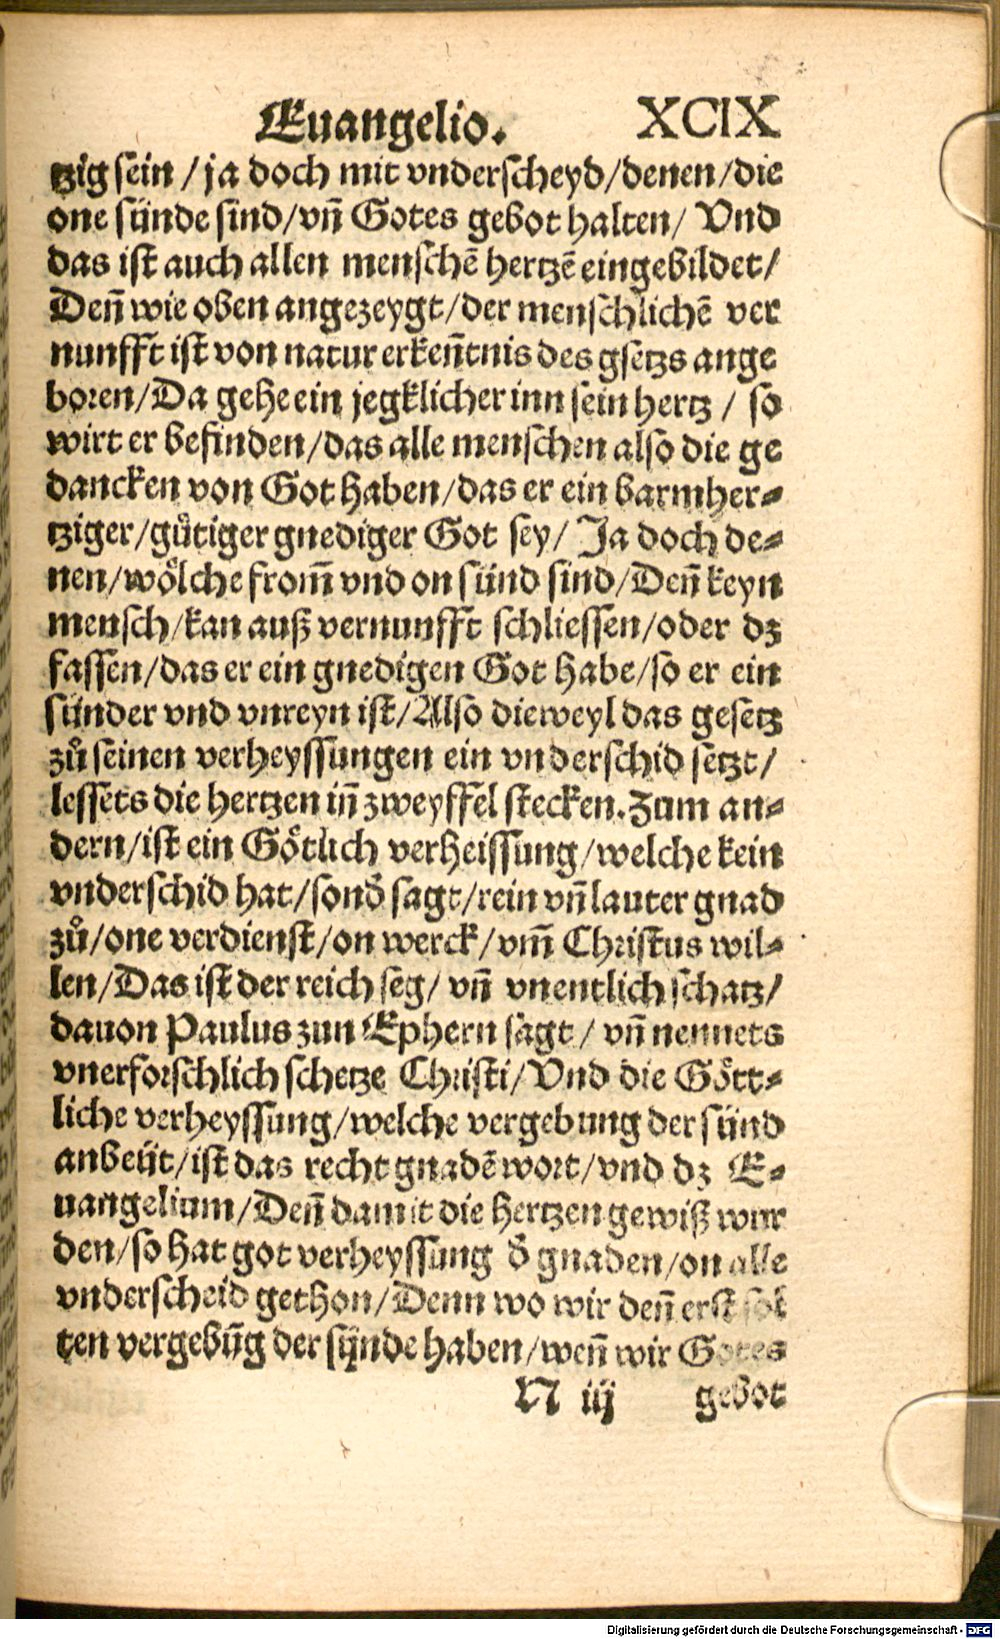 Euangelio. XCIX
tzig sein / ja doch mit vnderscheyd/denen/die
one sünde sind/vñ Gotes gebot halten/ Vnd
das ist auch allen menschẽ hertzẽ eingebildet/
Deñ wie oben angezeygt/der menschlichẽ ver
nunfft ist von natur erkeñtnis des gsetzs ange
boren/Da gehe ein jegklicher inn sein hertz / so
wirt er befinden/das alle menschen also die ge
dancken von Got haben/das er ein barmher-
tziger/gůtiger gnediger Got sey/ Ja doch de-
nen/wölche from̃ vnd on sünd sind/Deñ keyn
mensch/kan auß vernunfft schliessen/oder dz
fassen/das er ein gnedigen Got habe/so er ein
sünder vnd vnreyn ist/Also dieweyl das gesetz
zů seinen verheyssungen ein vnderschid setzt/
lessets die hertzen iñ zweyffel stecken. Zum an-
dern/ist ein Götlich verheissung/welche kein
vnderschid hat/sonð sagt/rein vñ lauter gnad
zů/one verdienst/on werck/vm̃ Christus wil-
len/Das ist der reich seg/ vñ vnentlich schatz/
dauon Paulus zun Ephern sagt / vñ nennets
vnerforschlich schetze Christi/Vnd die Gött-
liche verheyssung/welche vergebung der sünd
anbeüt/ist das recht gnadẽ wort/vnd dz E-
uangelium/Deñ damit die hertzen gewiß wur
den/so hat got verheyssung ð gnaden/on alle
vnderscheid gethon/Denn wo wir deñ erst sol
ten vergebũg der sünde haben/weñ wir Gotes
N iij gebot
Digitalisierung gefördert durch die Deutsche Forschungsgemeinschaft - DFG